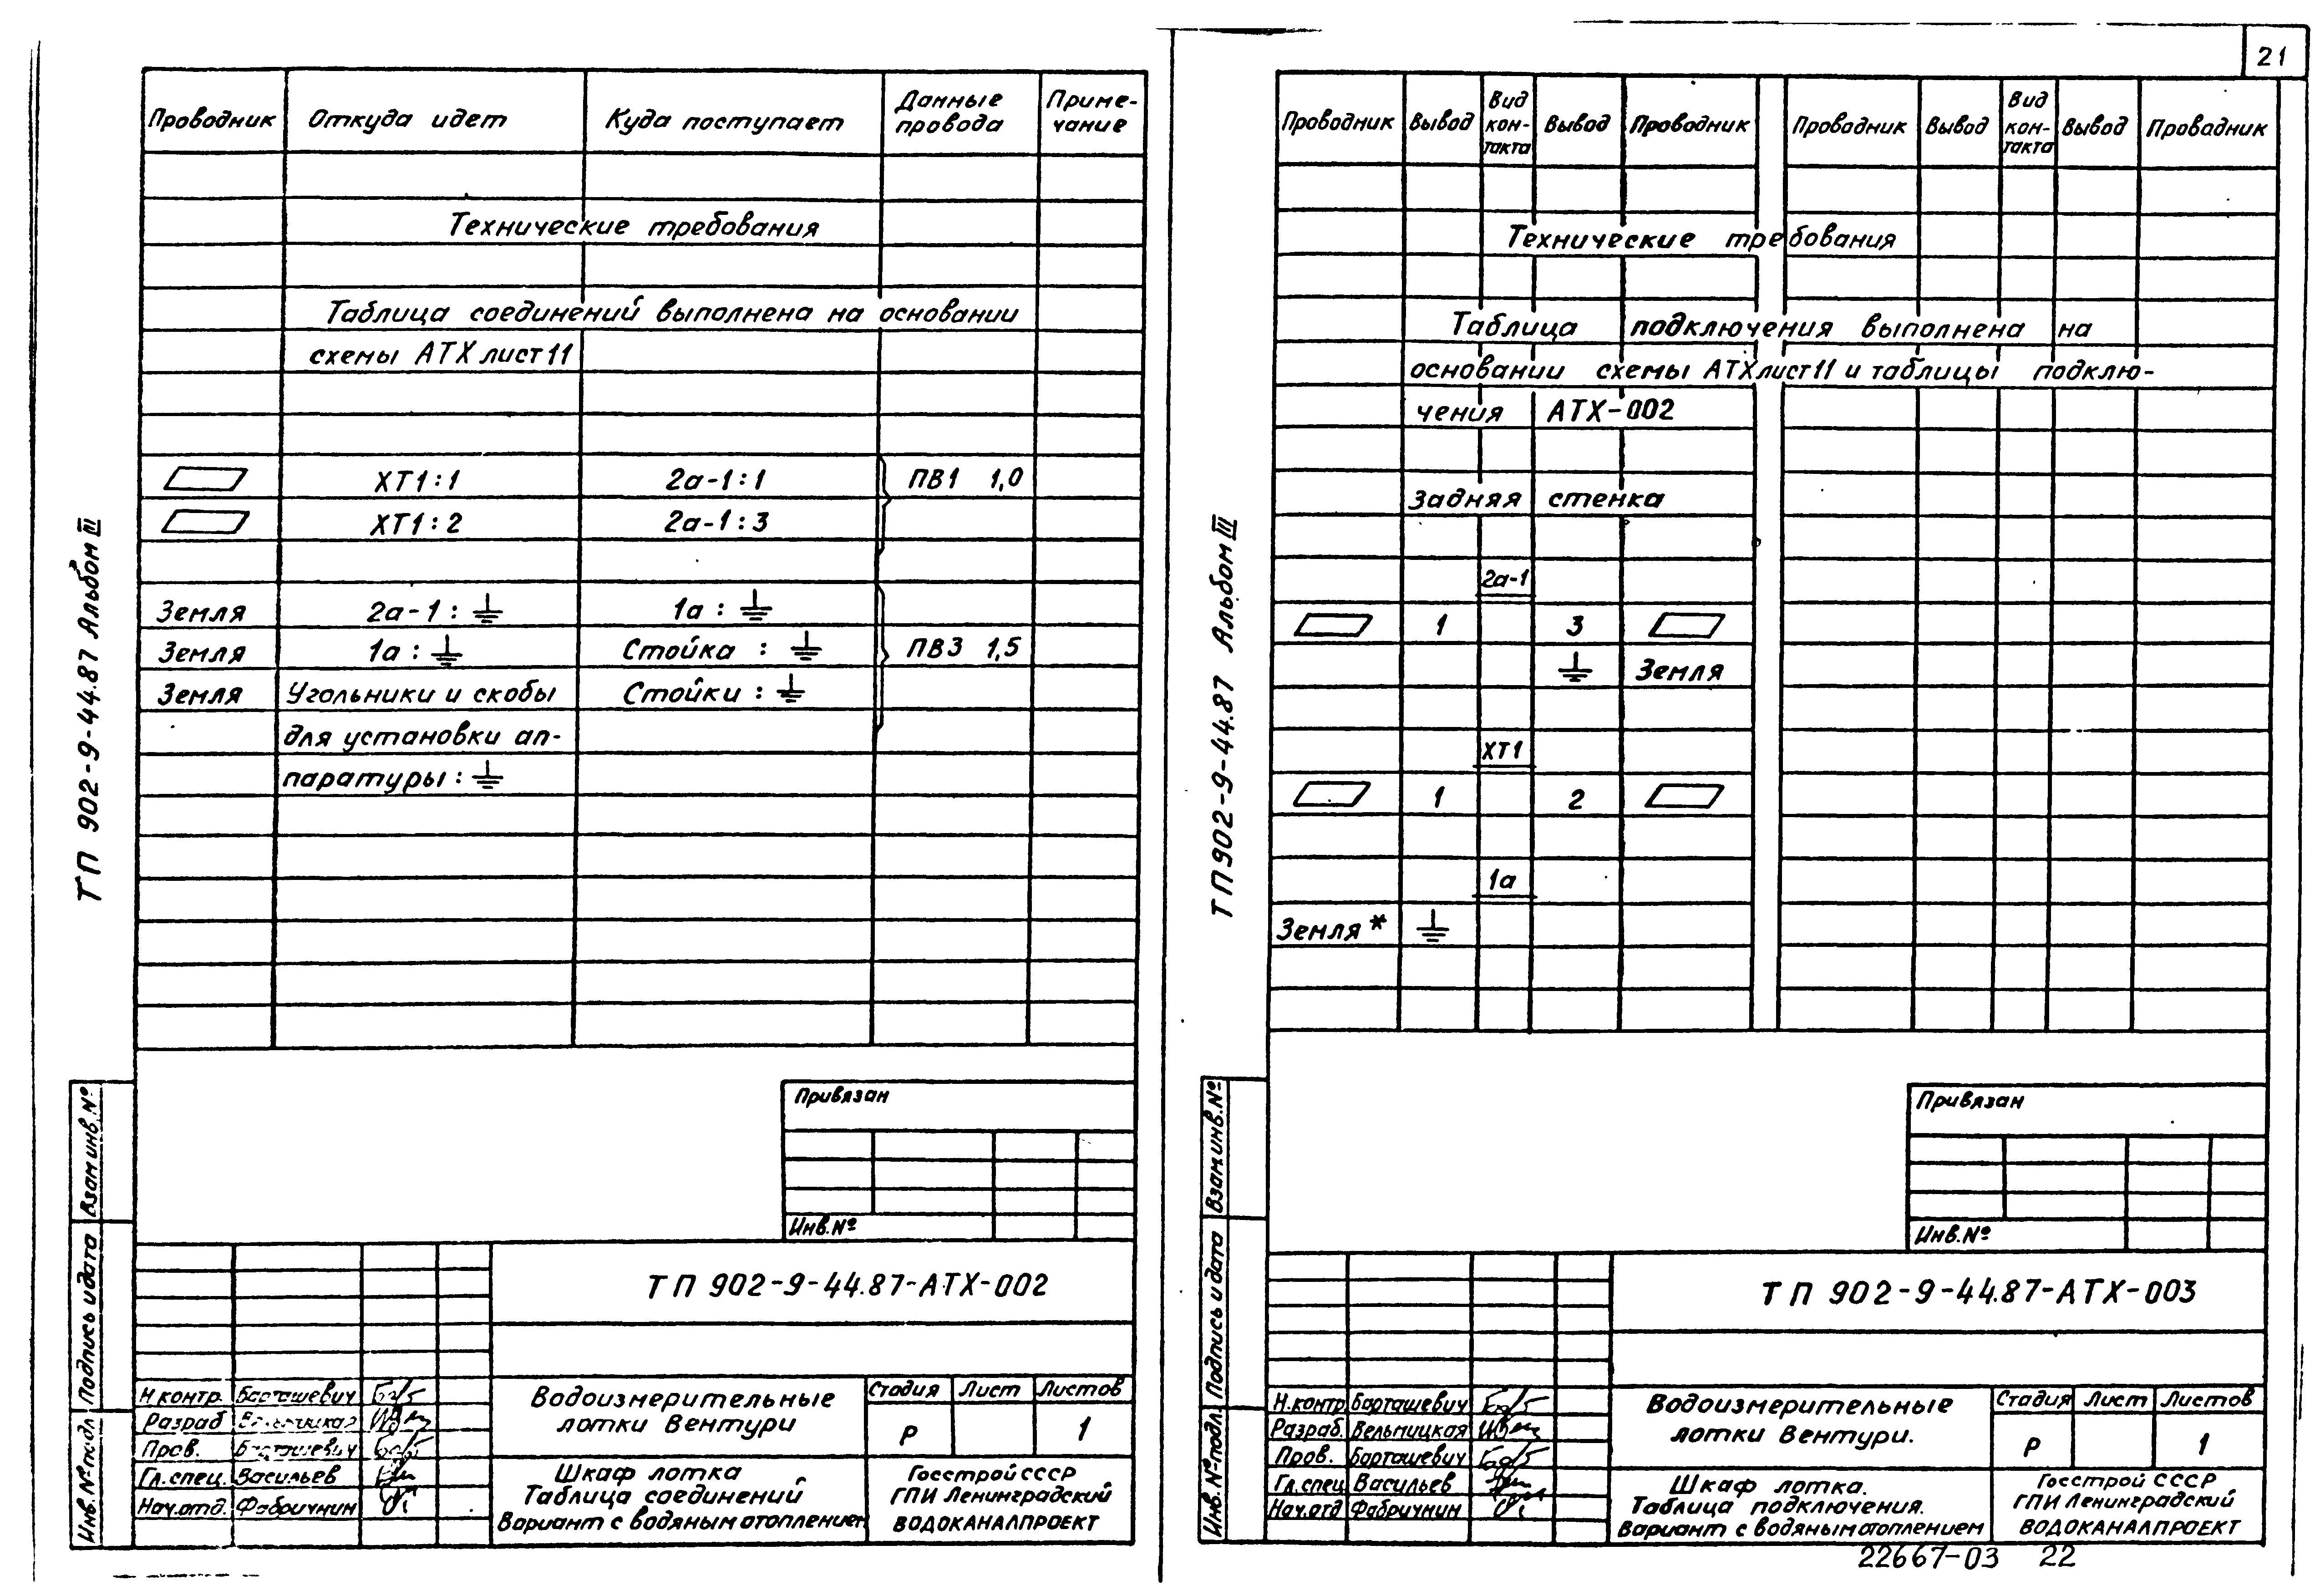 21
ТП 902-9-44.87 Альбом III
Проводник Откуда идет Куда поступает Данные провода Приме-чание
Технические требования
Таблица соединений выполнена на основании
схемы АТХ лист 11
ХТ1:1 2а-1:1 ПВ1 1,0
ХТ1:2 2а-1:3
Земля 2а-1: ⏚ 1а: ⏚
Земля 1а: ⏚ Стойка: ⏚ ПВ3 1,5
Земля Угольники и скобы Стойки: ⏚
для установки ап-
паратуры: ⏚
Привязан
Инв.№
Взам инв.№
Подпись и дата
Инв.№подл
ТП 902-9-44.87-АТХ-002
Н.контр. Барташевич
Разраб
Пров. Барташевич
Гл.спец. Васильев
Нач.отд. Фабричнин
Водоизмерительные
лотки Вентури
Стадия Лист Листов
Р 1
Шкаф лотка
Таблица соединений
Вариант с водяным отоплением
Госстрой СССР
ГПИ Ленинградский
ВОДОКАНАЛПРОЕКТ
ТП 902-9-44.87 Альбом III
Проводник Вывод Вид кон-такта Вывод Проводник Проводник Вывод Вид кон-такта Вывод Проводник
Технические требования
Таблица подключения выполнена на
основании схемы АТХ лист 11 и таблицы подклю-
чения АТХ-002
Задняя стенка
2а-1
1 3
⏚ Земля
ХТ1
1 2
1а
Земля* ⏚
Привязан
Инв.№
Взам.инв.№
Подпись и дата
Инв.№подл.
ТП 902-9-44.87-АТХ-003
Н.контр Барташевич
Разраб. Вельницкая
Пров. Барташевич
Гл.спец Васильев
Нач.отд Фабричнин
Водоизмерительные
лотки Вентури.
Стадия Лист Листов
Р 1
Шкаф лотка.
Таблица подключения.
Вариант с водяным отоплением
Госстрой СССР
ГПИ Ленинградский
ВОДОКАНАЛПРОЕКТ
22667-03 22